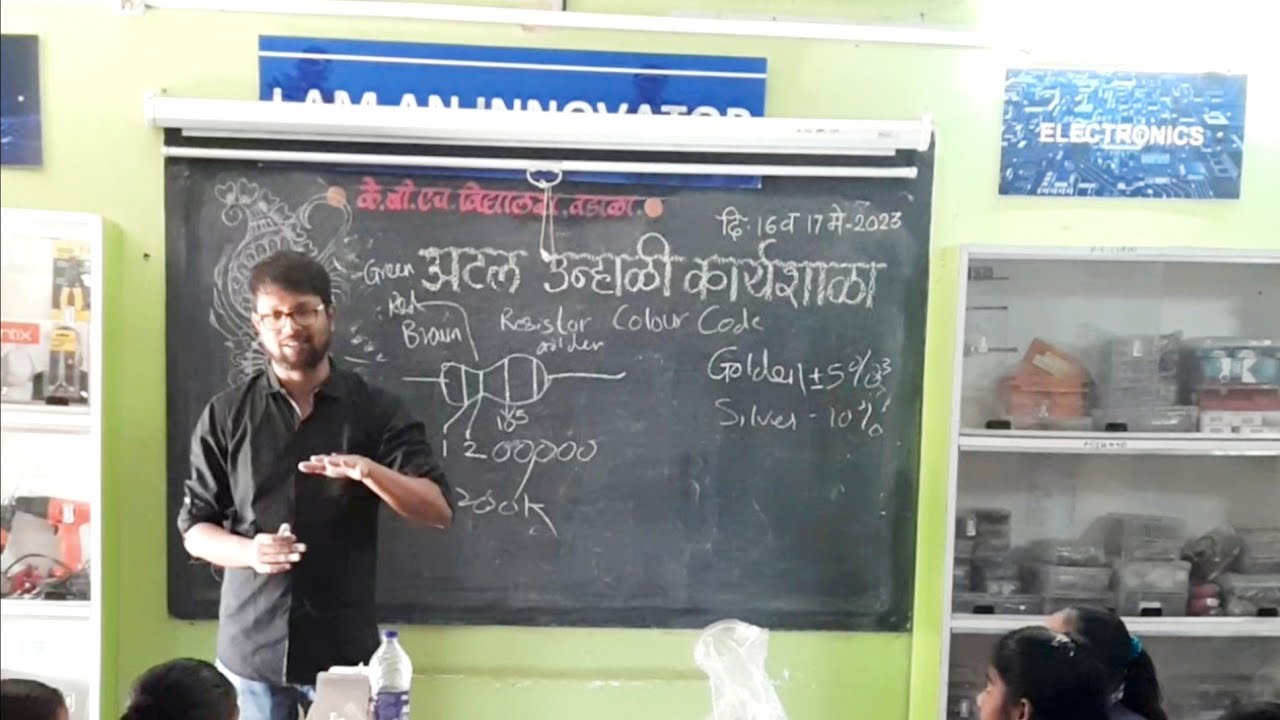 I AM AN INNOVATOR
ELECTRONICS
के.बी.एच.विद्यालय,वडाळा.
दि. 16 व 17 मे-2023
अटल उन्हाळी कार्यशाळा
Green
Red
Brown
Resistor Colour Code
golden
Golden ±5%
Silver - 10%
10 5
1 2 00000
200K